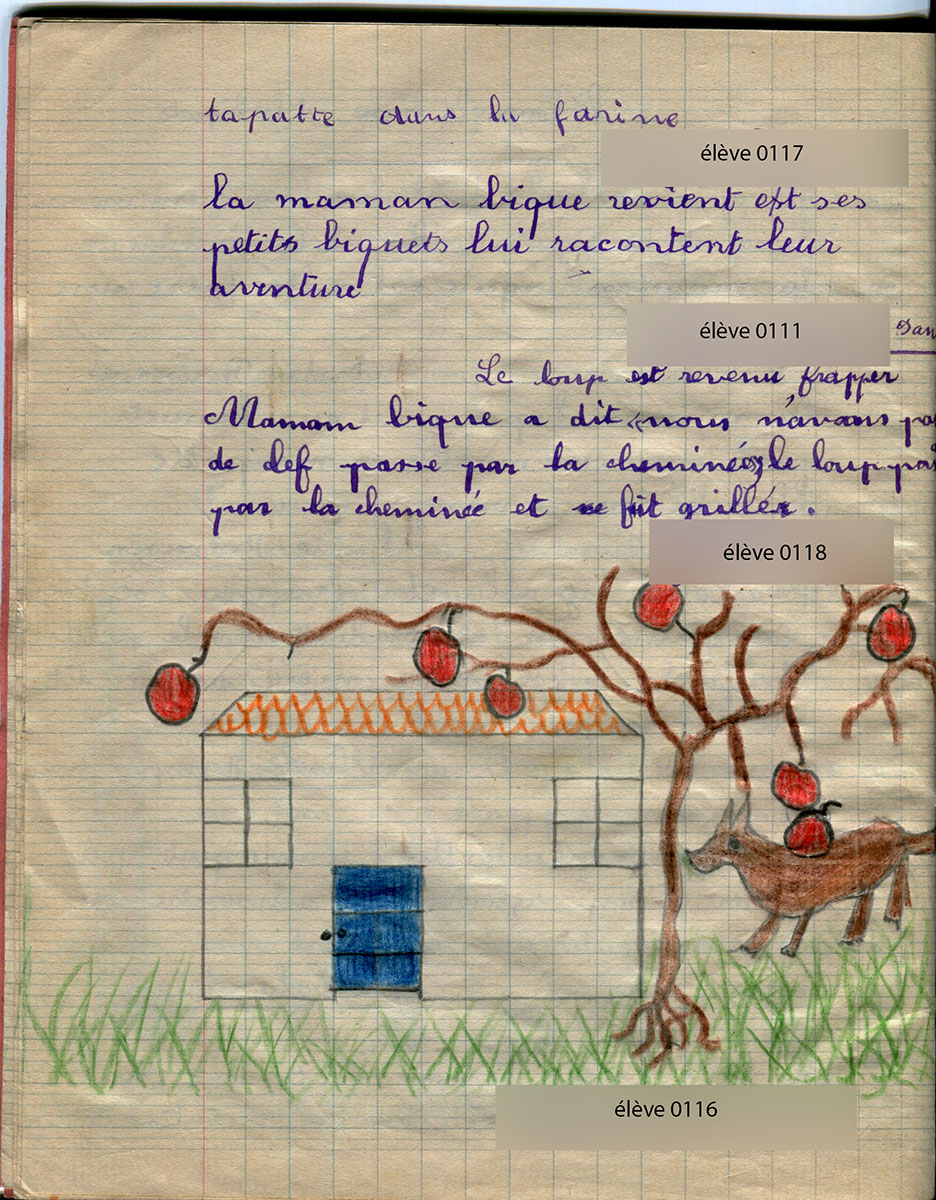 tapatte dans la farine
élève 0117
la maman bique revient est ses
petits biquets lui racontent leur
aventure
élève 0111
Le loup est revenu frapper
Mamam bique a dit «nous n'avons
de clef passe par la cheminée» le loup
par la cheminée et se fut griller.
élève 0118
élève 0116